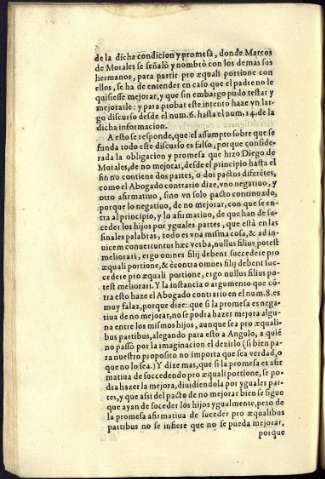 de la dicha condicion y promesa, donde Marcos
de Morales se señalò y nombrò con los demas sos
hermanos, para partir pro æquali portione con
ellos, se ha de entender en caso que el padre no le
quisiesse mejorar, y que sin embargo pudo testar y
mejorarle: y para probar este intento haze vn lar
go discurso desde el num. 6. hasta el num. 14. de la
dicha informacion.
A esto se responde, que el assumpto sobre que se
funda todo este discurso es falso, porque conside
rada la obligacion y promesa que hizo Diego de
Morales, de no mejorar, desde el principio hasta el
fin no contiene dos partes, o dos pactos diferẽtes,
como el Abogado contrario dize, vno negatiuo, y
otro afirmatiuo, sino vn solo pacto continuado,
porque lo negatiuo, de no mejorar, con que se en
tra al principio, y lo afirmatiuo, de que han de su-
ceder los hijos por yguales partes, que està en las
finales palabras, todo es vna misma cosa, & ad in
uicem conuertuntur hæc verba, nullus filius potest
meliorari, ergo omnes filij debent succedere pro
æquali portione, & è contra omnes filij debent suc
cedere pro æquali portione, ergo nullus filius po-
test meliorari. Y la instancia o argumento que cõ
tra esto haze el Abogado contrario en el num. 8. es
muy falaz, porque dize: que si la promesa es nega
tiua de no mejorar, no se podra hazer mejora algu
na entre los mismos hijos, aunque sea pro æquali-
bus partibus, alegando para esto a Angulo, a quiẽ
no passò por la imaginacion el dezirlo (si bien pa
ra nuestro proposito no importa que sea verdad, o
que no lo sea.) Y dize mas, que si la promesa es afir
matiua de succedendo pro æquali portione, se po-
dra hazer la mejora, diuidiendola por yguales par-
tes, y que assi del pacto de no mejorar bien se sigue
que ayan de suceder los hijos ygualmente, pero de
la promesa afirmatiua de suceder pro æqualibos
partibus no se infiere que no se pueda mejorar,
porque